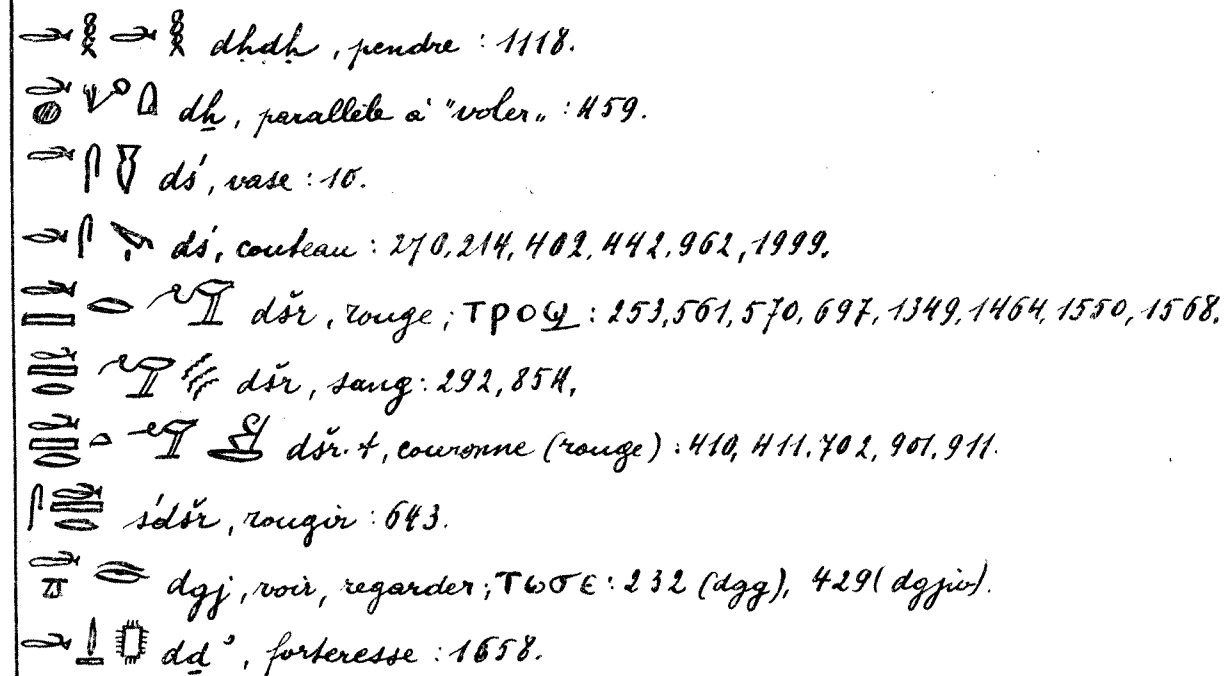 𓂧𓎛𓂧𓎛 dḥdḥ, pendre : 1118.
dẖ, parallèle à "voler„ : 459.
dś, vase : 10.
dś, couteau : 270, 214, 402, 442, 962, 1999.
dšr, rouge; ⲧⲣⲟϣ : 253, 561, 570, 697, 1349, 1464, 1550, 1568.
dšr, sang : 292, 854,
dšr·t, couronne (rouge) : 410, 411. 702, 901, 911.
śdšr, rougir : 643.
dgj, voir, regarder; ⲧⲱϭⲉ : 232 (dgg), 429 (dgjw).
dḏʾ, forteresse : 1658.